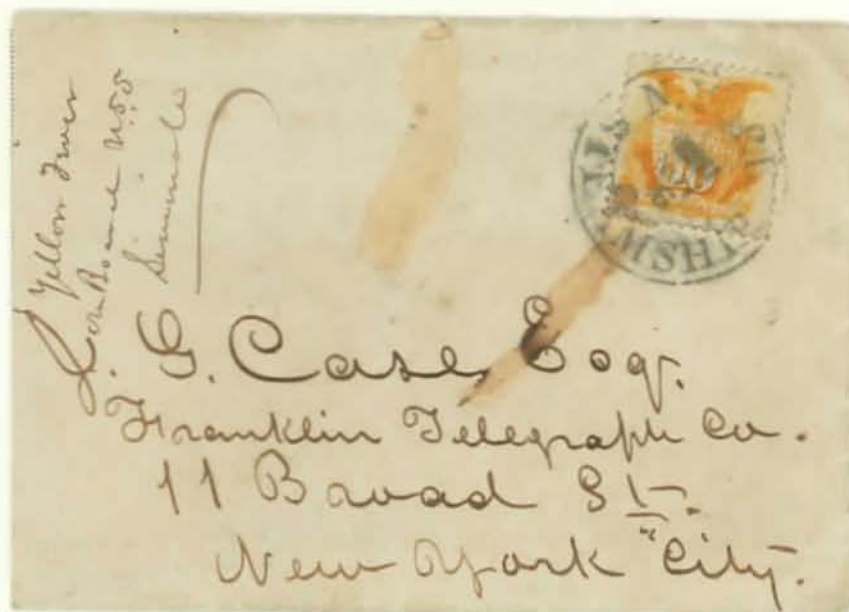 Yellow Fever
on Board U.S.S
Seminole
STEAMSHIP
10
J. G. Case, Esq.
Franklin Telegraph Co.
11 Broad St.
New York City.